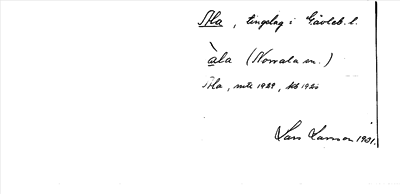 Ala, tingslag i Gävleb. l.
àla (Norrala sn.)
Ala, 1929, 1920
Lars Larsson 1931.